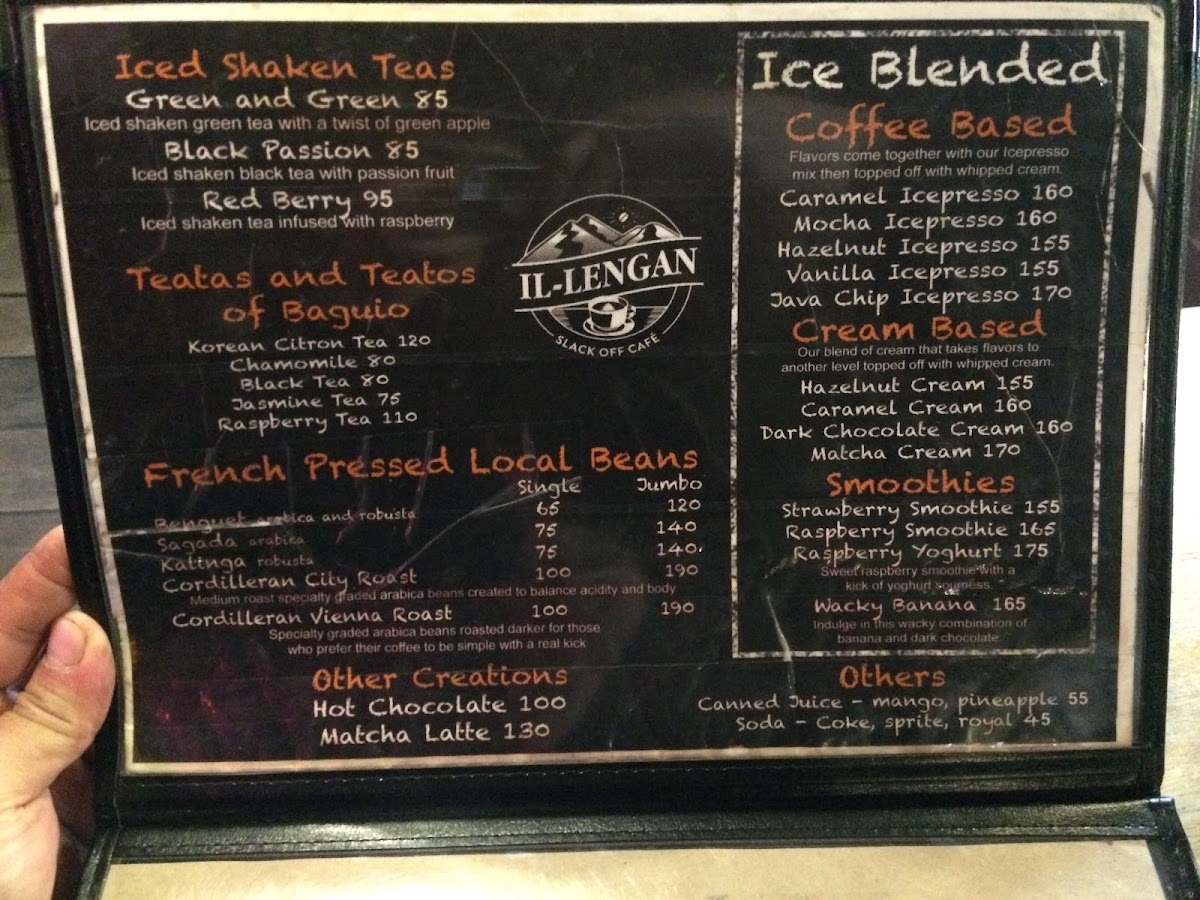 Iced Shaken Teas
Green and Green 85
Iced shaken green tea with a twist of green apple
Black Passion 85
Iced shaken black tea with passion fruit
Red Berry 95
Iced shaken tea infused with raspberry
Teatas and Teatos
of Baguio
Korean Citron Tea 120
Chamomile 80
Black Tea 80
Jasmine Tea 75
Raspberry Tea 110
IL-LENGAN
SLACK OFF CAFE
French Pressed Local Beans
Single Jumbo
Benguet arabica and robusta 65 120
Sagada arabica 75 140
Kalinga robusta 75 140
Cordilleran City Roast 100 190
Medium roast specialty graded arabica beans created to balance acidity and body
Cordilleran Vienna Roast 100 190
Specialty graded arabica beans roasted darker for those
who prefer their coffee to be simple with a real kick
Other Creations
Hot Chocolate 100
Matcha Latte 130
Ice Blended
Coffee Based
Flavors come together with our Icepresso
mix then topped off with whipped cream.
Caramel Icepresso 160
Mocha Icepresso 160
Hazelnut Icepresso 155
Vanilla Icepresso 155
Java Chip Icepresso 170
Cream Based
Our blend of cream that takes flavors to
another level topped off with whipped cream.
Hazelnut Cream 155
Caramel Cream 160
Dark Chocolate Cream 160
Matcha Cream 170
Smoothies
Strawberry Smoothie 155
Raspberry Smoothie 165
Raspberry Yoghurt 175
Sweet raspberry smoothie with a
kick of yoghurt sourness.
Wacky Banana 165
Indulge in this wacky combination of
banana and dark chocolate.
Others
Canned Juice - mango, pineapple 55
Soda - Coke, sprite, royal 45